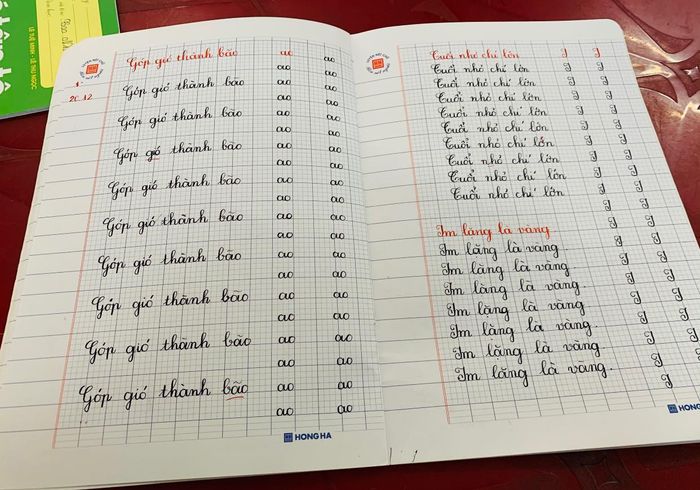 LÊ TUỆ MINH - LÊ THU NGỌC
20.12
Góp gió thành bão ao ao
ao ao
Góp gió thành bão ao ao
ao ao
Góp gió thành bão ao ao
ao ao
Góp gió thành bão ao ao
ao ao
Góp gió thành bão ao ao
ao ao
Góp gió thành bão ao ao
ao ao
Góp gió thành bão ao ao
ao ao
Góp gió thành bão ao ao
ao ao
Góp gió thành bão ao ao
ao ao
Góp gió thành bão ao ao
ao ao
HONG HA
Tuổi nhỏ chí lớn I I
Tuổi nhỏ chí lớn I I
Tuổi nhỏ chí lớn I I
Tuổi nhỏ chí lớn I I
Tuổi nhỏ chí lớn I I
Tuổi nhỏ chí lớn I I
Tuổi nhỏ chí lớn I I
Tuổi nhỏ chí lớn I I
Tuổi nhỏ chí lớn I I
Tuổi nhỏ chí lớn I I
I I
Im lặng là vàng I I
Im lặng là vàng. I I
Im lặng là vàng. I I
Im lặng là vàng. I I
Im lặng là vàng. I I
Im lặng là vàng. I I
Im lặng là vàng. I I
Im lặng là vàng. I I
HONG HA